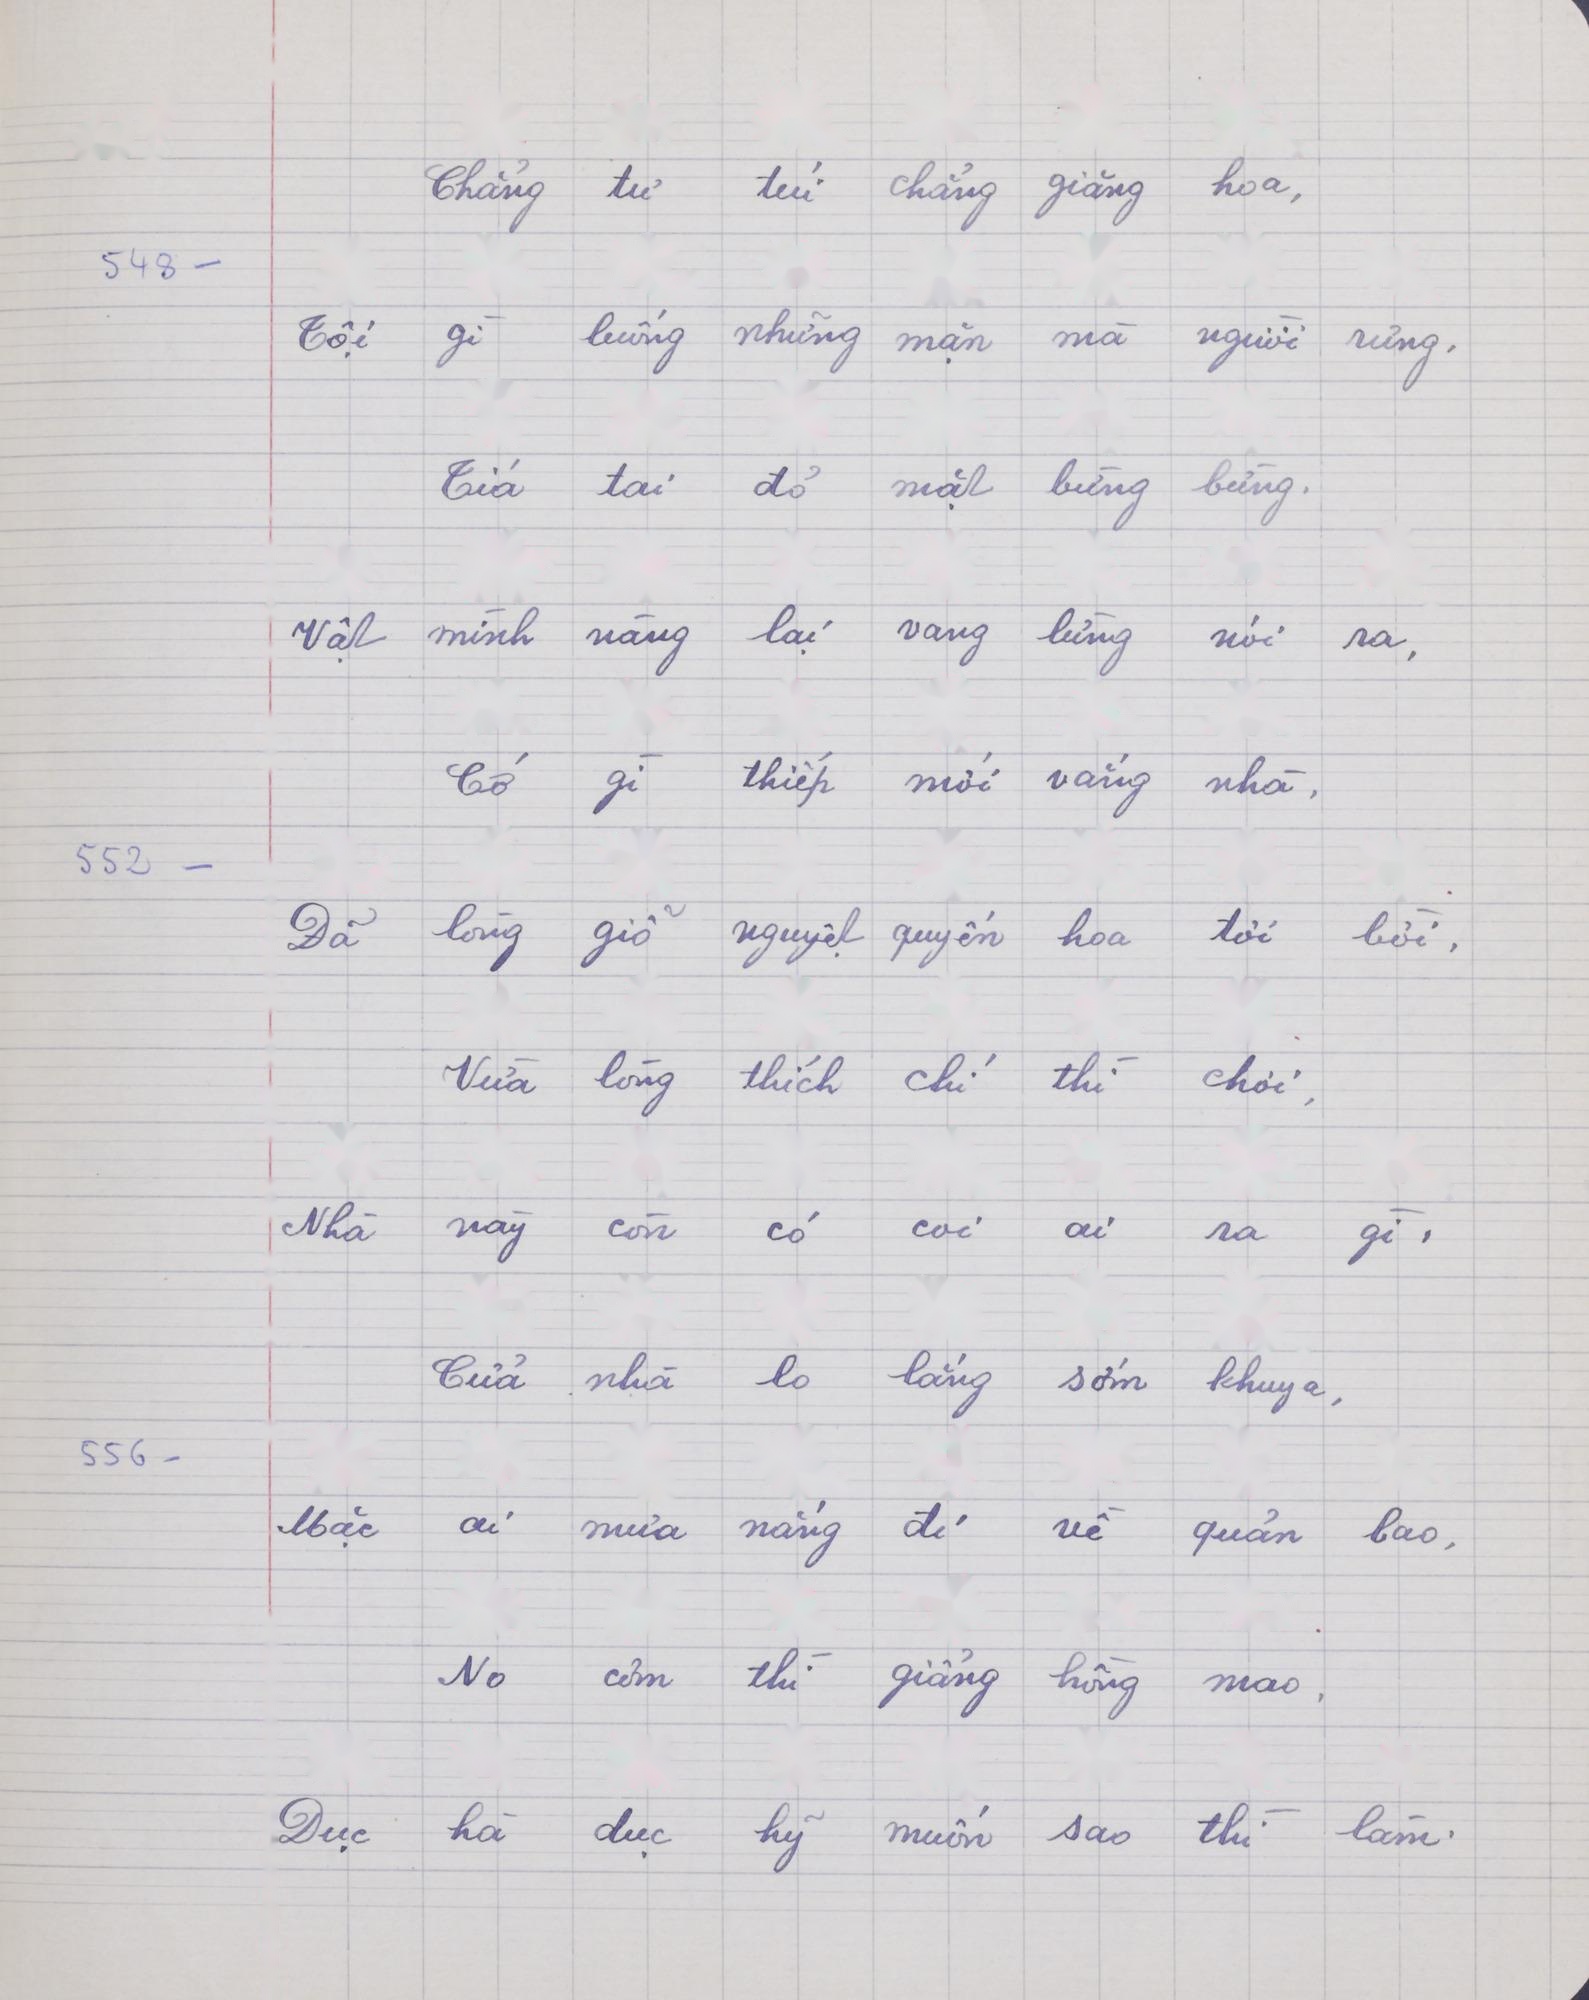 Chẳng tư túi chẳng giăng hoa,
548 –
Tội gì luống những mặn mà người rưng.
Tiá tai đỏ mặt bừng bừng.
Vật mình nàng lại vang lừng nói ra,
Cớ gì thiếp mới vắng nhà,
552 –
Đã lòng giỗ nguyệt quyến hoa tơi bời,
Vừa lòng thích chí thì chơi,
Nhà này còn có coi ai ra gì,
Cửa nhà lo lắng sớm khuya,
556 –
Mặc ai mưa nắng đi về quản bao,
No cơm thì giẩng hồng mao,
Dục hà dục hỹ muốn sao thì làm.